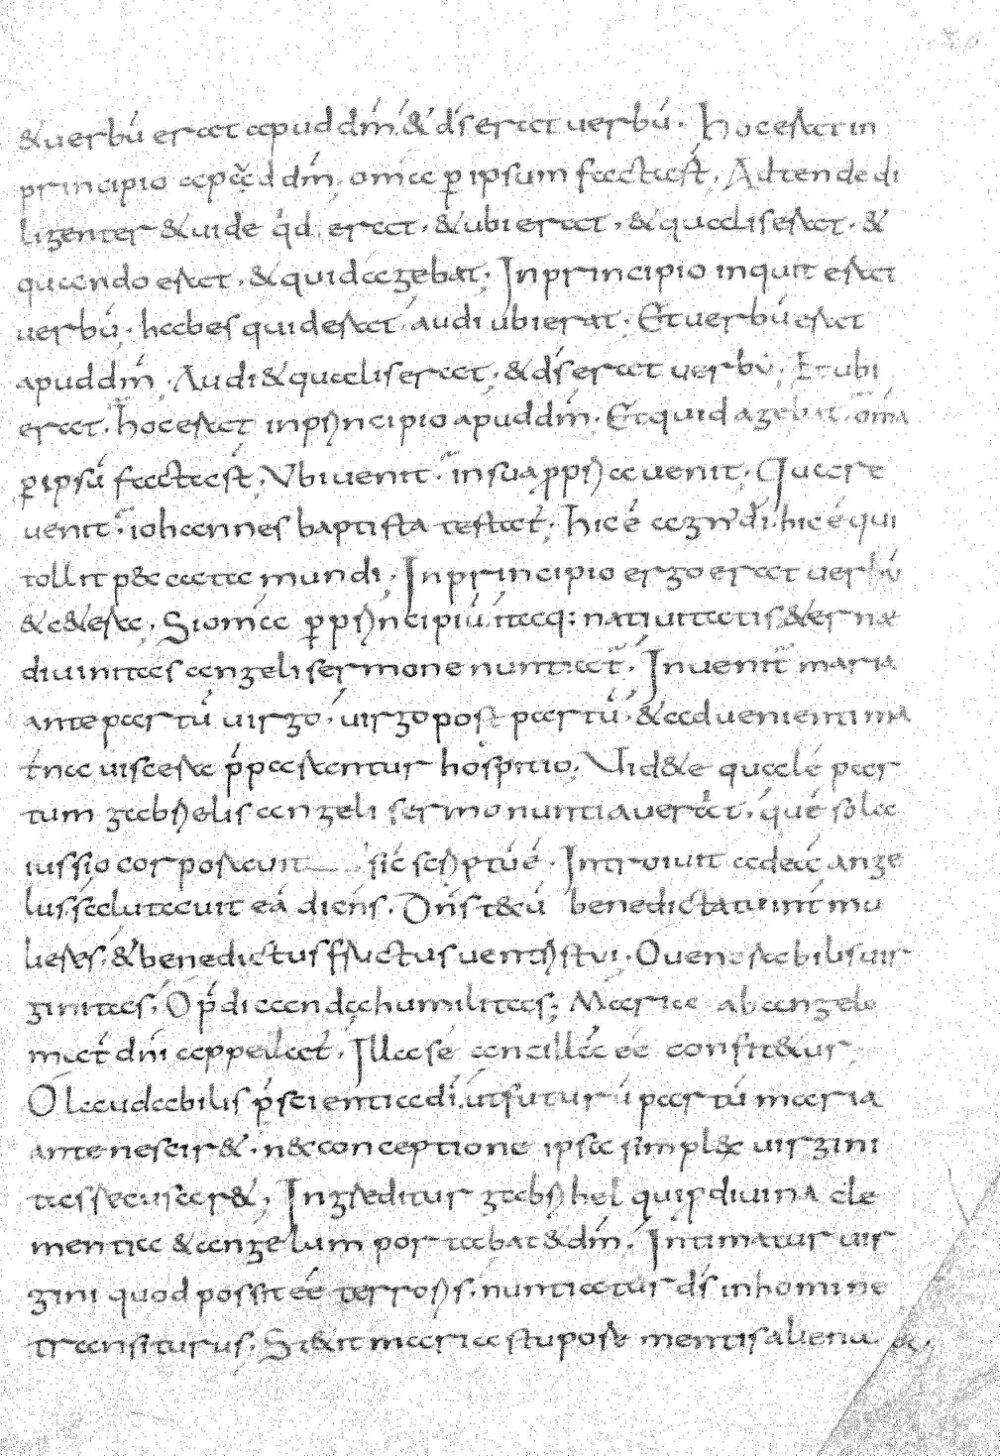 &uerbū erat apud dm̄. & ds̄ erat uerbū. Hoc erat in
principio apud dm̄. omia p̱ ipsum facta st̄. Adtende di
ligenter & uide qd̄ erat. & ubi erat. & qualis erat. &
quando erat. & quid agebat. In principio inquit erat
uerbū. habes quid erat. audi ubi erat. Et uerbū erat
apud dm̄. Audi & qualis erat. & ds̄ erat uerbū. Et ubi
erat. hoc erat in principio apud dm̄. Et quid agebat. om̄ia
p̱ ipsū facta st̄. Ubi uenit. in sua propria uenit. Quare
uenit. iohannes baptista testat̄. hic ē agn̄ di. hic ē qui
tollit p&cata mundi. In principio ergo erat uerbū
& c&era. Si omīa p̱ principiū. itaq: natiuitatis &erna
diuinitas angeli sermone nuntiat̄. Inuenit̄ maria
ante partū uirgo. uirgo post partū. & ad uenienti ma
t̄na uiscera pp̄arantur hospitio. Uid&e quale par
tum gabrielis angeli sermo nuntiauerat. que sola
iussio corporauit sic scriptū ē. Introiuit ad eā ange
lus. salutauit eā dicēns. Dn̄s t&ū benedicta tu int̄ mu
lieres. & benedictus fructus uentris tui. O uenerabilis uir
ginitas. O p̄dicanda humilitas. Maria ab angelo
mat̄ dn̄i appellat̄. Illa se ancillā eē confit&ur
O laudabilis p̄scientia di. ut futurū partū maria
ante nescir&. n& conceptione ipsa simpl& uirgini
tas seruiar&. Ingreditur gabrihel qui p̱ diuina cle
mentia & angelum portabat & dm̄. Intimatur uir
gini quod possit eē terroris. nuntiatur ds̄ in homine
transiturus. St&it maria stupore mentis aliena